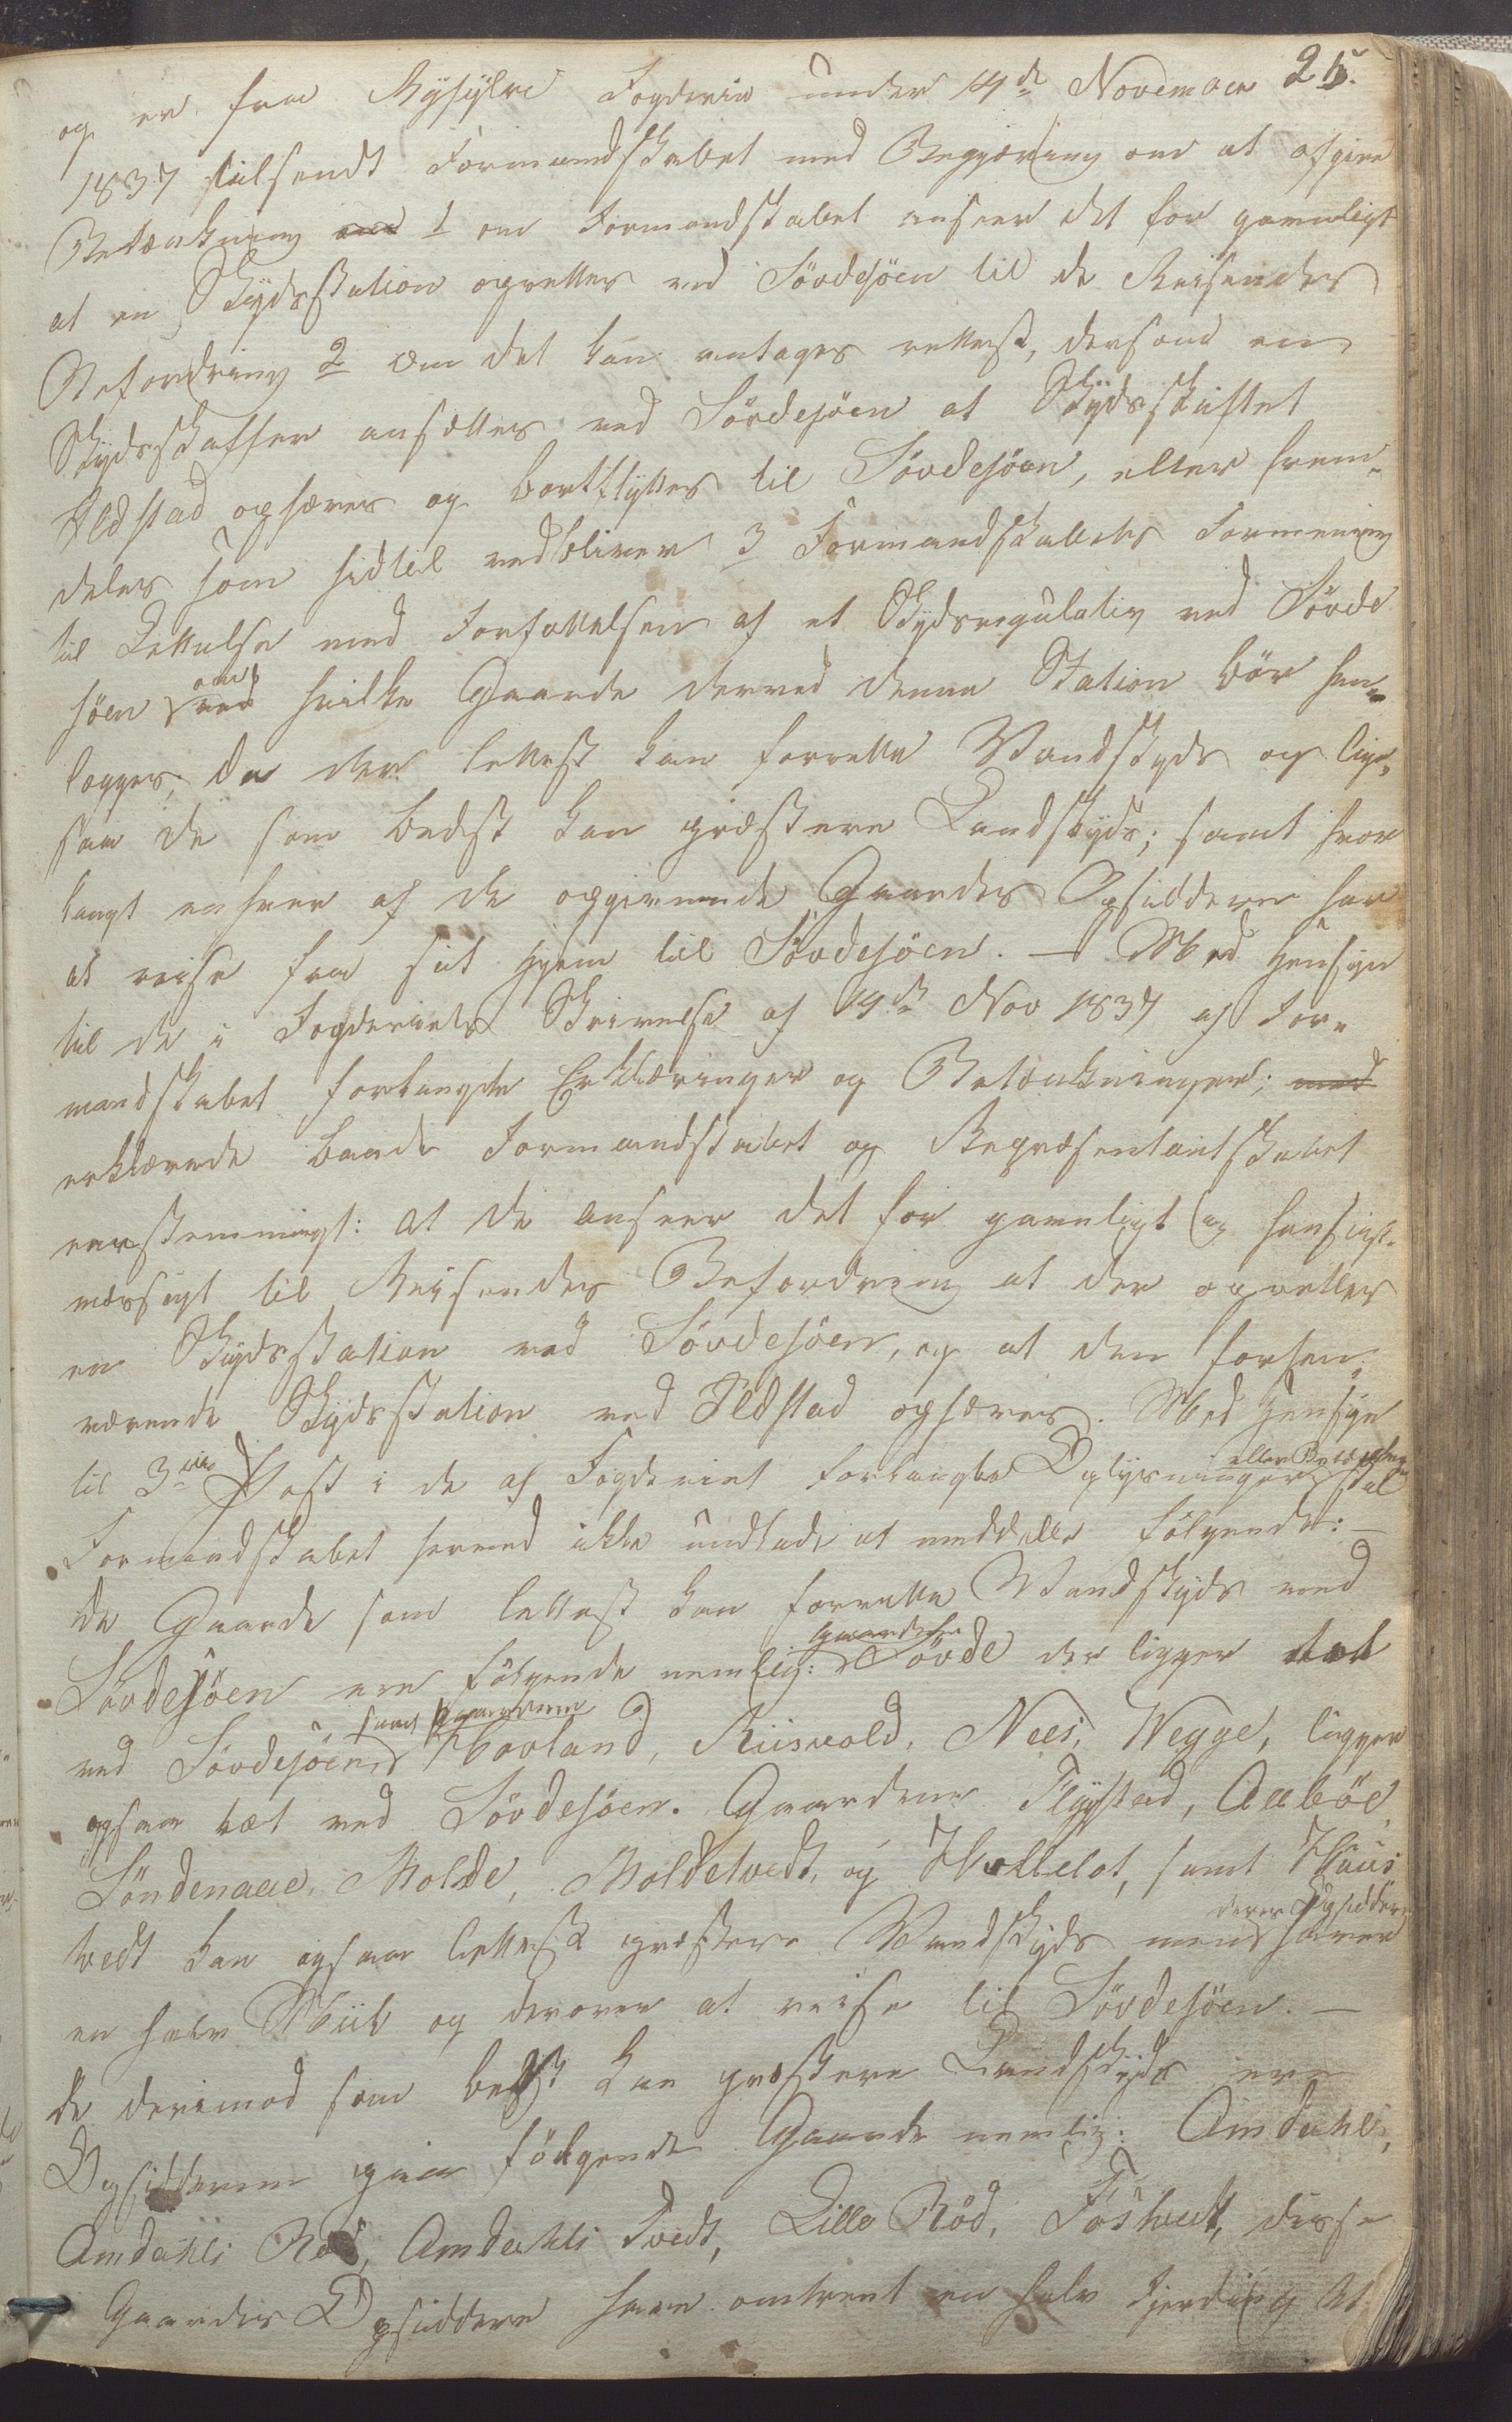 25.
og er fra Ryfylke Fogderie under 14de November
1837 tilsendt Formandskabet med Begjæring om at afgive
Betænkning om 1 om Formandskabet anseer det for gavnligt
at en Skydsstation oprettes ved Sövdesöen til de Reisendes
Befordring 2 om det kan antages rettest, dersom en
Skydsskaffer ansættes ved Sövdesöen at Skydsskiftet
Ildstad ophæves og bortflyttes til Sövdesöen, eller frem-
deles som hidtil vedbliver 3 Formandskabets Formening
til Lettelse ved Forfattelsen af et Skydsregulativ ved Sövde
söen om hvilke Gaarde derved denne Station bör hen-
lægges, da der lettest kan forrette Vandskyds og lige-
saa de som bedst kan præstere Landskyds; samt hvor
langt enhver af de opgivende Gaardes Opsiddere har
at reise fra sit Hjem til Sövdesöen. — Med Hensyn
til de i Fogderiets Skrivelse af 14de Nov 1837 af For-
mandskabet forlangte Erklæringer og Betænkninger; med
erklærede baade Formandskabet og Repræsentantskabet
eenstemmigt: at de anseer det for gavnligt og hensigts-
mæssigt til Reisendes Befordring at der oprettes
en Skydsstation ved Sövdesöen, og at den forhen-
værende Skydsstation ved Ildstad ophæves. Med Hensyn
til 3die Post i de af Fogderiet forlangte Oplysninger eller Betænkning skal
Formandskabet herved ikke undlade at meddele fölgende: —
de Gaarde som lettest kan forrette Vandskyds ved
Sövdesöen ere fölgende nemlig: Gaardene Sövde der ligger tæt
ved Sövdesöen, samt Gaardene Hovland, Riisvold, Nees, Wegge, ligger
ogsaa tæt ved Sövdesöen. Gaardene Flystad, Aaböe,
Söndenaae, Molde, Moldetvedt, og Hallelot, samt Huus
tvedt kan ogsaa lettest præstere Vandskyds men deres Opsiddere haver
en halv Miil og derover at reise til Sövdesöen. —
de derimod som bedst kan præstere Landskyds ere
Opsidderne paa fölgende Gaarde nemlig: Amdahl,
Amdahls Röd, Amdahls Tvedt, Lille Röd, Fostvedt, disse
Gaardes Opsiddere have omtrent en halv Fjerding at